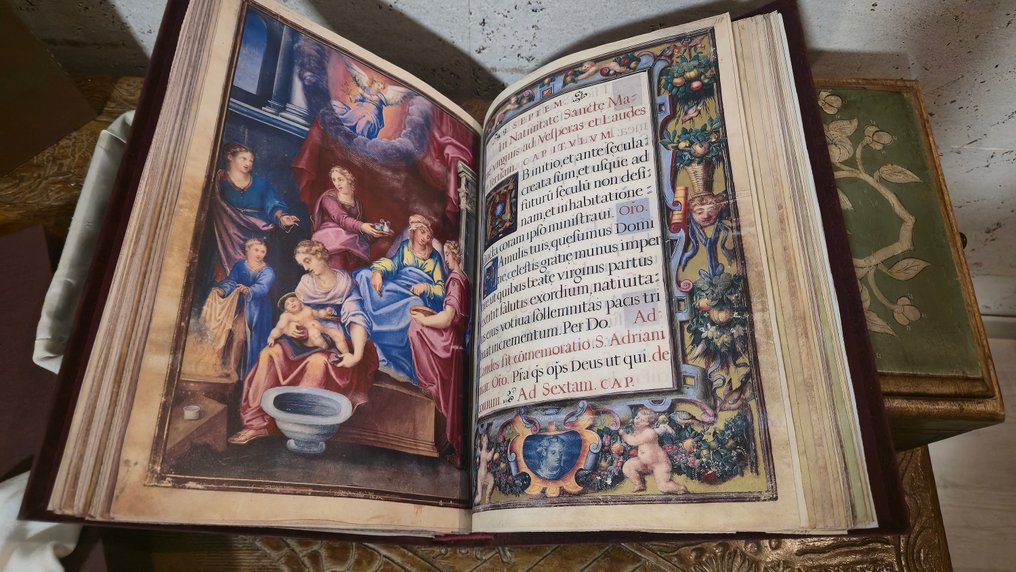 SEPTEM.
In Natiuitate Sancte Ma-
rie virginis ad Vesperas et Laudes
CAPITVLVM
AB initio, et ante secula
creata sum, et usque ad
futurū seculū non desi-
nam, et in habitatione
coram ipso ministraui. Oro.
FAmulis tuis, quesumus Domi
ne, celestis gratie munus imper
ut quibus beate virginis partus
extitit salutis exordium, natiuita:
tis eius votiua sollemnitas pacis tri
buat incrementum. Per Do. Ad
Laudes fit cōmemoratio S. Adriani
mar. Oro. Pra qs ops Deus ut qui. de
Ad Sextam. CAP.